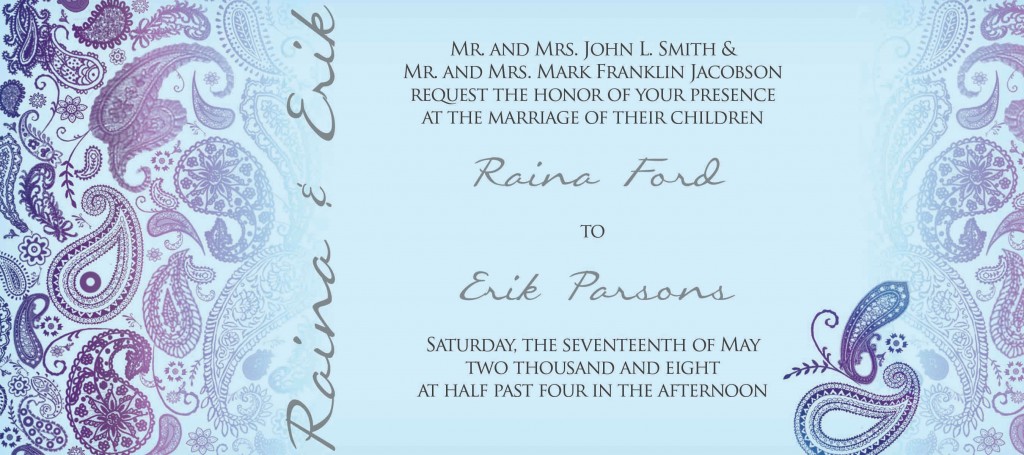 Raina & Erik
Mr. and Mrs. John L. Smith &
Mr. and Mrs. Mark Franklin Jacobson
request the honor of your presence
at the marriage of their children
Raina Ford
to
Erik Parsons
Saturday, the seventeenth of May
two thousand and eight
at half past four in the afternoon